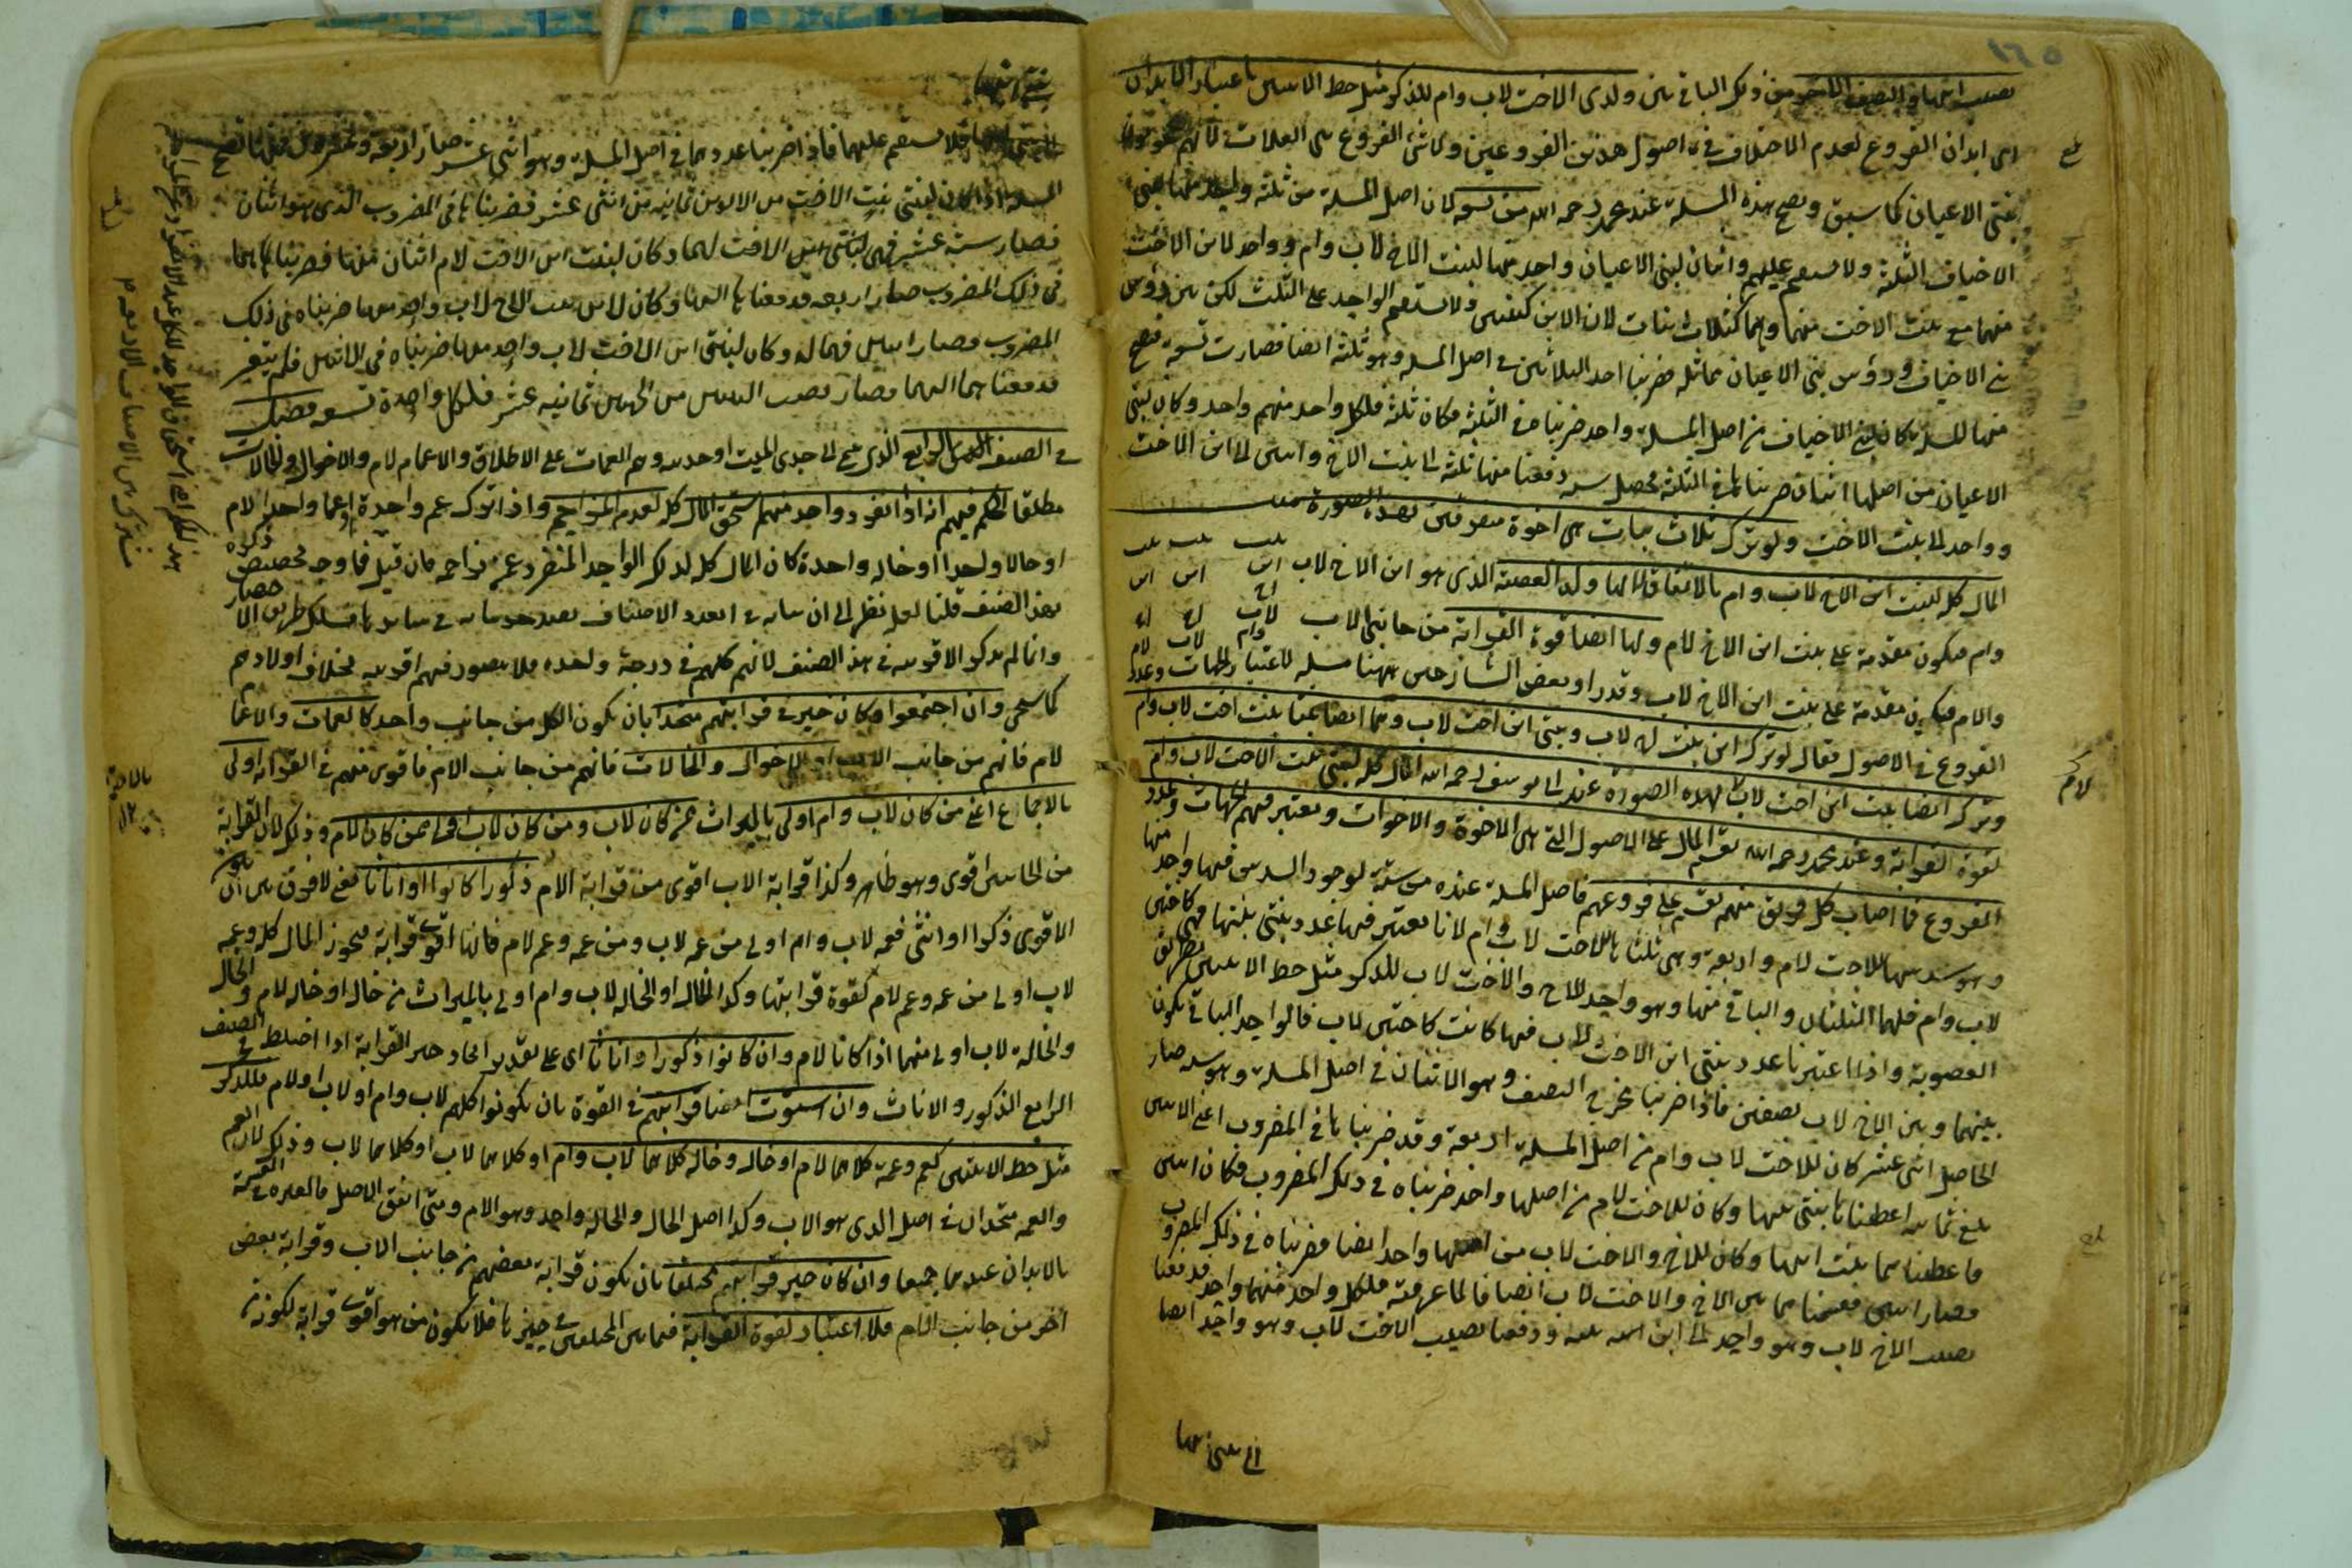 ١٦٥
نصيب ابيها والنصف الآخر من ذلك الباقي بين ولدى الاخت لاب وام للذكر مثل حظ الانثيين باعتبار الابدان
اى ابدان الفروع لعدم الاختلاف في اصول هذين الفروعين ولا شئ الفروع بنى العلات لانهم محجوبون
ببنى الاعيان كما سبق وتصح هذه المسئلة عند محمد رحمه الله من تسعة لان اصل المسئلة من ثلثة واحد منها لبنى
الاخياف الثلثة ولا يستقيم عليهم واثنان لبنى الاعيان واحد منها لبنت الاخ لاب وام وواحد لابن الاخت
منهما مع بنت الاخت منهما وهما كثلاث بنات لان الابن كبنتين ولا يستقيم الواحد على الثلث لكن بين رؤس
بنى الاخياف ورؤس بنى الاعيان مماثلة فضربنا احد الثلاثين في اصل المسئلة وهو ثلثة ايضا فصارت تسعة فتصح
منها المسئلة كان لبنى الاخياف من اصل المسئلة واحد ضربناه في الثلثة فكان ثلثة فلكل واحد منهم واحد وكان لبنى
الاعيان من اصلها اثنان ضربناهما في الثلثة فحصل ستة دفعنا منها ثلثة الى بنت الاخ واثنين الى ابن الاخت
وواحد الى بنت الاخت ولو ترك ثلاث بنات بنى اخوة متفرقين بهذه الصورة
بنت بنت بنت
المال كله لبنت ابن الاخ لاب وام بالاتفاق لانها ولد العصبة الذى هو ابن الاخ لاب
ابن ابن ابن
وام فيكون مقدمة على بنت ابن الاخ لام ولها ايضا قوة القرابة من جانبى الاب
اخ لاب وام اخ لاب اخ لام
والام فيكون مقدمة على بنت ابن الاخ لاب وقد راو بعض الشارحين ههنا مسئلة لاعتبار الجهات وعدد
الفروع في الاصول فقال لو ترك ابن بنت اخ لاب وبنتى ابن اخت لاب وهما ايضا بنتا بنت اخت لاب وام
وترك ايضا بنت ابن اخت لام بهذه الصورة عند ابى يوسف رحمه الله المال كله لبنتى بنت الاخت لاب وام
لام
لقوة القرابة وعند محمد رحمه الله يقسم المال على الاصول التى هى الاخوة والاخوات ويعتبر فيهم الجهات وعدد
الفروع فما اصاب كل فريق منهم يقسم على فروعهم فاصل المسئلة عنده من ستة لوجود السدس فيها واحد منها
وهو سدسها للاخت لام واربعة وهى ثلثاها للاخت لاب وام لانا نعتبر فيها عدد بنتى بنتها فهى كاختين
لاب وام فلهما الثلثان والباقى منها وهو واحد للاخ والاخت لاب للذكر مثل حظ الانثيين بطريق
العصوبة واذا اعتبرنا عدد بنتى ابن الاخت لاب فيها كانت كاختين لاب فالواحد الباقى يكون
بينهما وبين الاخ لاب نصفين فاذا ضربنا مخرج النصف وهو الاثنان في اصل المسئلة وهو ستة صار
الحاصل اثنى عشر كان للاخت لاب وام من اصل المسئلة اربعة وقد ضربناها في المضروب اعنى الاثنين
بلغ ثمانية اعطيناها بنتى بنتها وكان للاخت لام من اصلها واحد ضربناه في ذلك المضروب فكان اثنين
فاعطيناهما بنت ابنها وكان للاخ والاخت لاب من اصلها واحد ايضا فضربناه في ذلك المضروب
فصار اثنين فقسمناهما بين الاخ والاخت لاب انصافا لما عرفته فلكل واحد منهما واحد فدفعنا
نصيب الاخ لاب وهو واحد الى ابن بنته ودفعنا نصيب الاخت لاب وهو واحد ايضا
الى بنتى ابنها
بنتى ابنها
فلا يستقيم عليهما فاذا ضربنا عددهما في اصل المسئلة وهو اثنى عشر صار اربعة وعشرين فمنها تصح
المسئلة اذا كان لبنتى بنت الاخت من الابوين ثمانية من اثنى عشر فضربناها في المضروب الذى هو اثنان
فصار ستة عشر فهى لبنتى بنت الاخت لهما وكان لبنت ابن الاخت لام اثنان منها فضربناهما
في ذلك المضروب صار اربعة فدفعناها اليها وكان لابن بنت الاخ لاب واحد منها ضربناه في ذلك
المضروب فصار اثنين فهما له وكان لبنتى ابن الاخت لاب واحد منها ضربناه في الاثنين فلم يتغير
فدفعناهما اليهما فصار نصيب البنتين من الجهتين ثمانية عشر فلكل واحدة تسعة فصل
في الصنف الرابع الذى ينتمى الى جدى الميت او جدتيه وهم العمات على الاطلاق والاعمام لام والاخوال والخالات
مطلقا الحكم فيهم انه اذا انفرد واحد منهم استحق المال كله لعدم المزاحم واذا ترك عمة واحدة او عما واحدا لام
او خالا واحدا او خالة واحدة كان المال كله لذلك الواحد المنفرد عن مزاحمه فان قيل فما وجه تخصيص ذكره
بهذا الصنف قلنا لعله نظر الى ان بيانه في احد الاصناف يفيد بيانه في سائرها فسلك طريق الاختصار
وانما لم يذكر الاقربية في هذا الصنف لانهم كلهم في درجة واحدة فلا يتصور فيهم اقربية بخلاف اولادهم
كما سيجئ وان اجتمعوا وكان حيز قرابتهم متحدا بان يكون الكل من جانب واحد كالعمات والاعمام
لام فانهم من جانب الاب او الاخوال والخالات فانهم من جانب الام فاقوى منهم في القرابة اولى
بالاجماع اعنى من كان لاب وام اولى بالميراث ممن كان لاب ومن كان لاب اولى ممن كان لام وذلك لان القرابة
من الجانبين اقوى وهو ظاهر وكذا قرابة الاب اقوى من قرابة الام ذكورا كانوا او اناثا يعنى لا فرق بين ان يكون
الاقوى ذكرا او انثى فعمة لاب وام اولى من عمة لاب ومن عمة وعم لام فانها اقوى قرابة فتحوز المال كله وعمة
لاب اولى من عمة وعم لام لقوة قرابتها وكذا الخال او الخالة لاب وام اولى بالميراث من خال او خالة لام والخال
والخالة لاب اولى منهما اذا كانا لام وان كانوا ذكورا واناثا اى على تقدير اتحاد حيز القرابة اذا اختلط في الصنف
الرابع الذكور والاناث وان استوت ايضا قرابتهم في القوة بان يكونوا كلهم لاب وام او لاب او لام فللذكر
مثل حظ الانثيين كعم وعمة كلاهما لام او خال وخالة كلاهما لاب وام او كلاهما لاب او كلاهما لاب وذلك لان العم
والعمة متحدان في اصل الذى هو الاب وكذا اصل الخال والخالة واحد وهو الام ومتى اتفق الاصل فالعبرة في القسمة
بالابدان عندهما جميعا وان كان حيز قرابتهم مختلفا بان يكون قرابة بعضهم من جانب الاب وقرابة بعض
اخر من جانب الام فلا اعتبار لقوة القرابة فيما بين المختلفين في حيزها فلا يكون من هو اقوى قرابة لكونه من